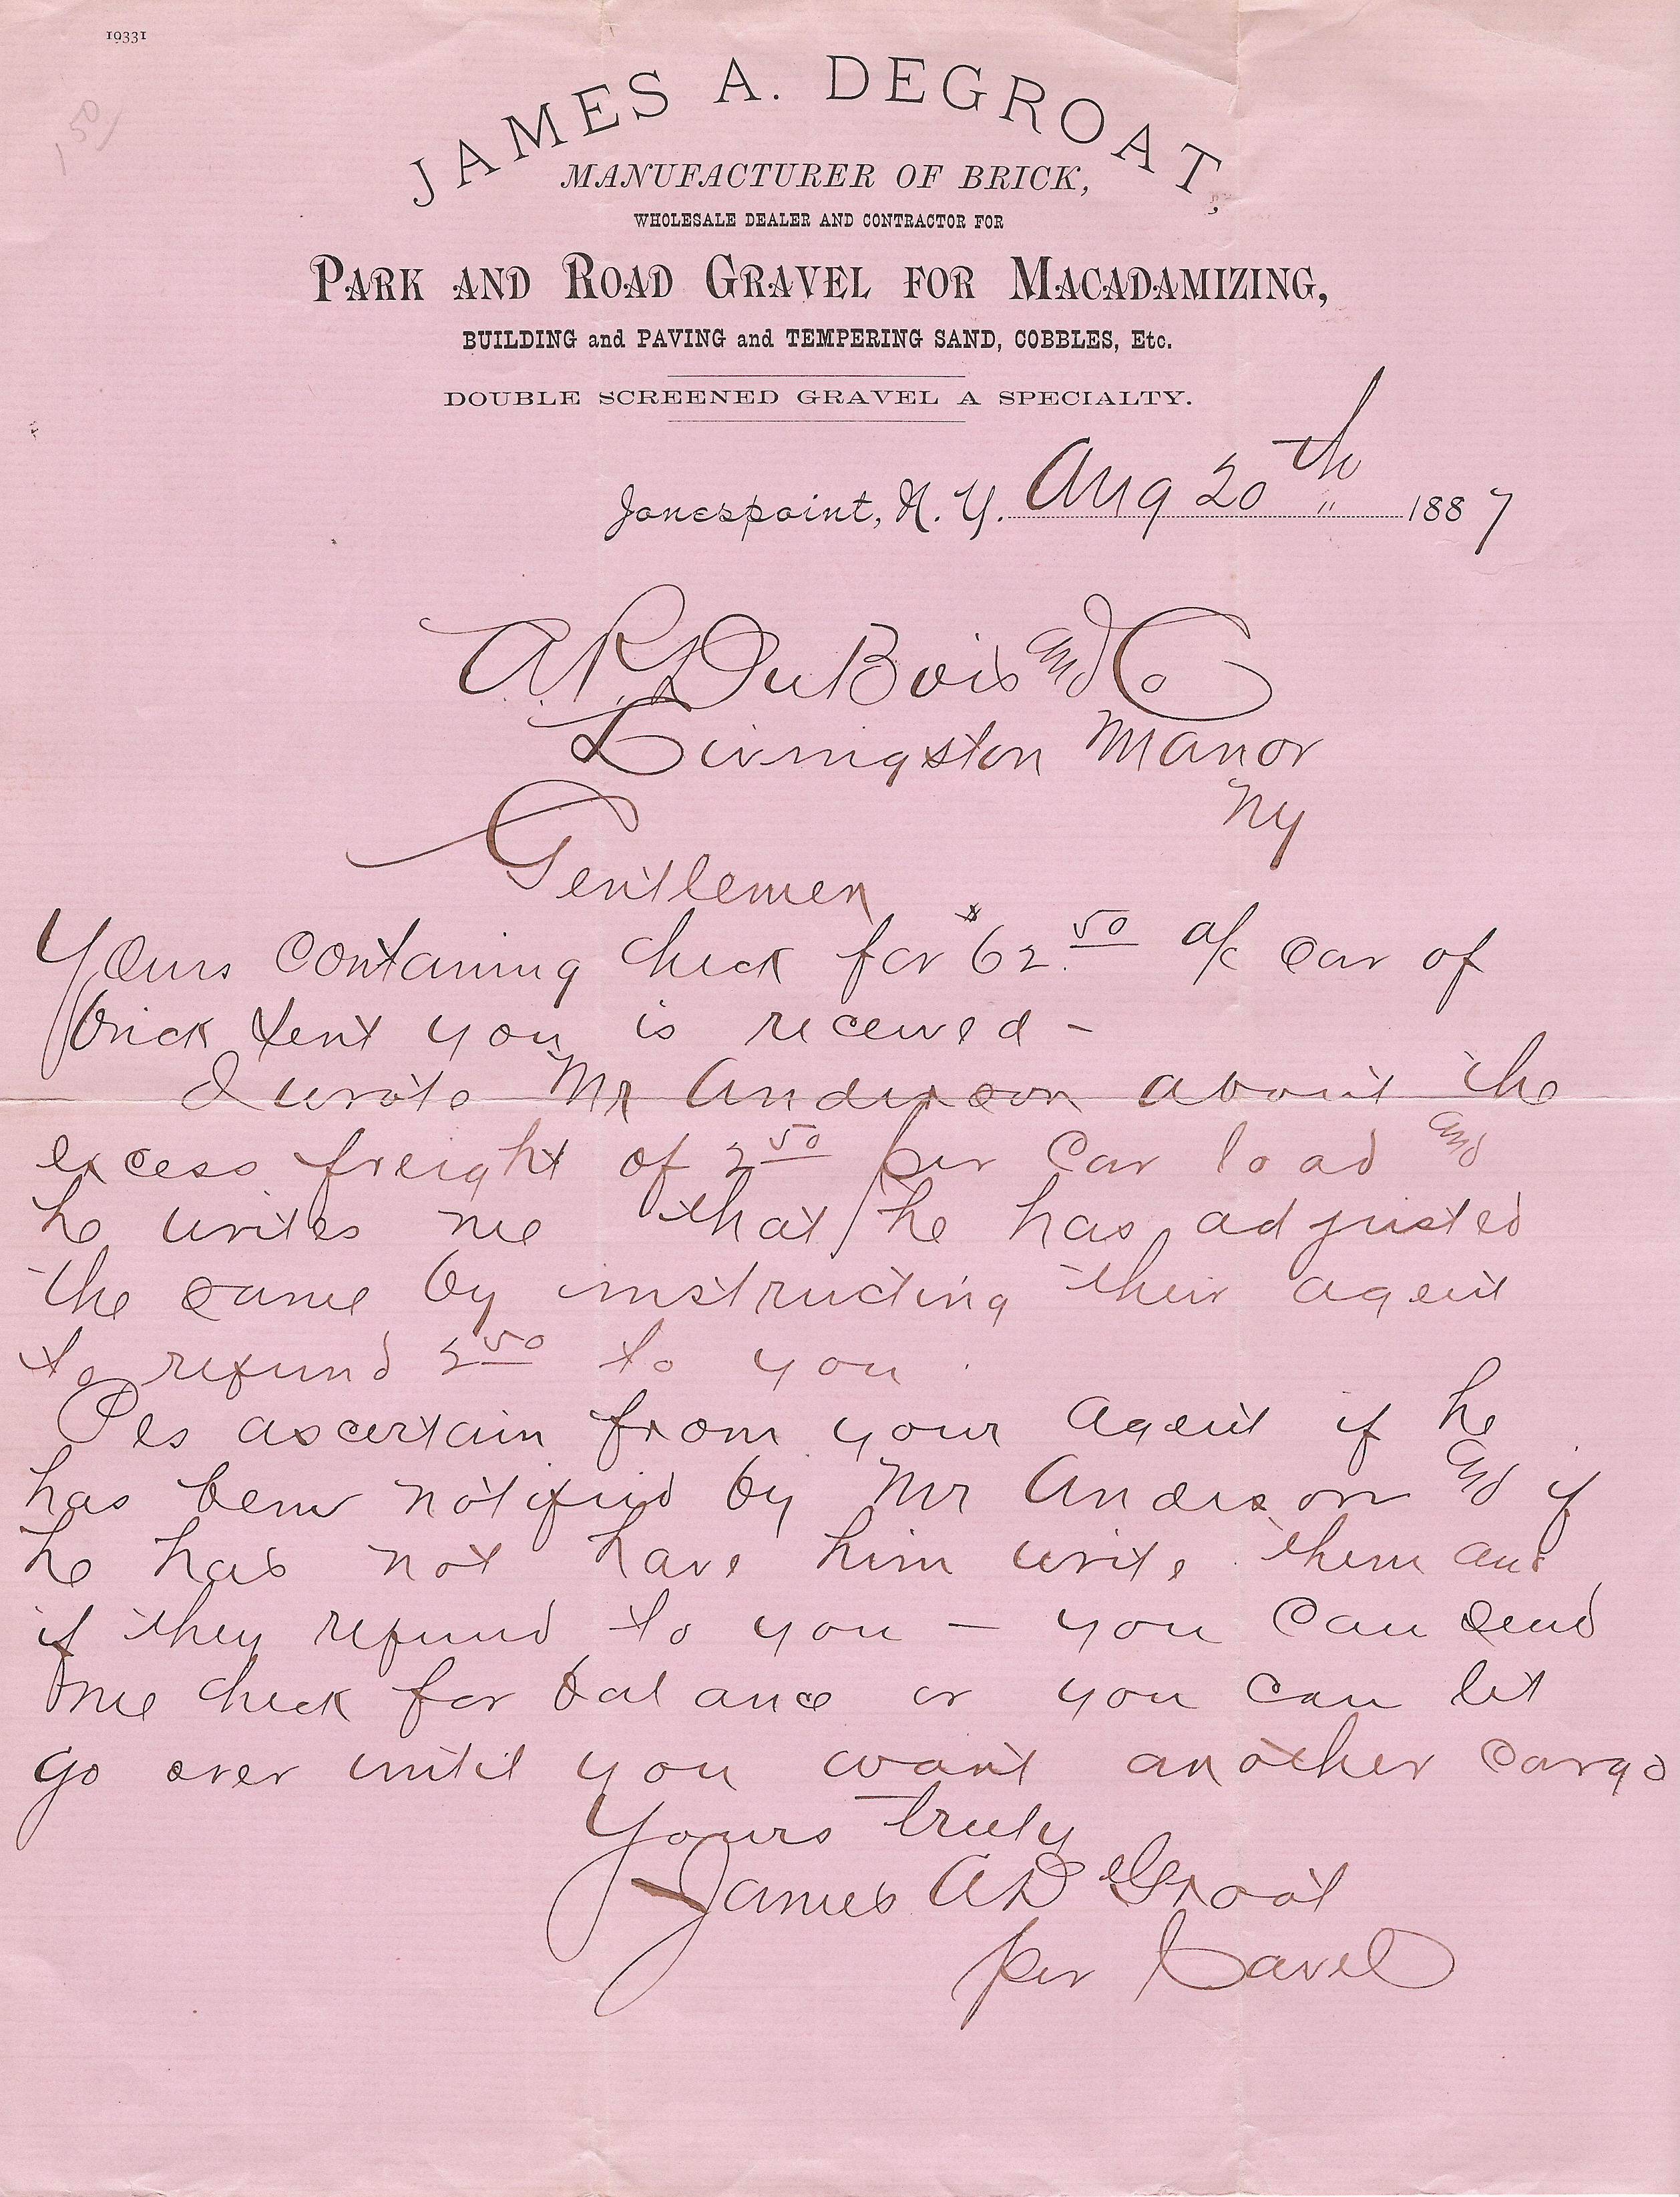 19331
1 50/
JAMES A. DEGROAT,
MANUFACTURER OF BRICK,
WHOLESALE DEALER AND CONTRACTOR FOR
PARK AND ROAD GRAVEL FOR MACADAMIZING,
BUILDING and PAVING and TEMPERING SAND, COBBLES, Etc.
DOUBLE SCREENED GRAVEL A SPECIALTY.
Jonespoint, N. Y. Aug 20th 1887
A. R. DuBois and Co
Livingston Manor
Ny
Gentlemen
Yours containing check for $62.50 a/c car of
brick sent you is received -
I wrote Mr Anderson about the
excess freight of 2 50 per car load and
he writes me that he has adjusted
the same by instructing their agent
to refund 2 50 to you.
Pls ascertain from your agent if he
has been notified by Mr Anderson and if
he has not have him write them and
if they refund to you — you can send
me check for balance or you can let
go over until you want another cargo
Yours truly
James A DeGroat
per